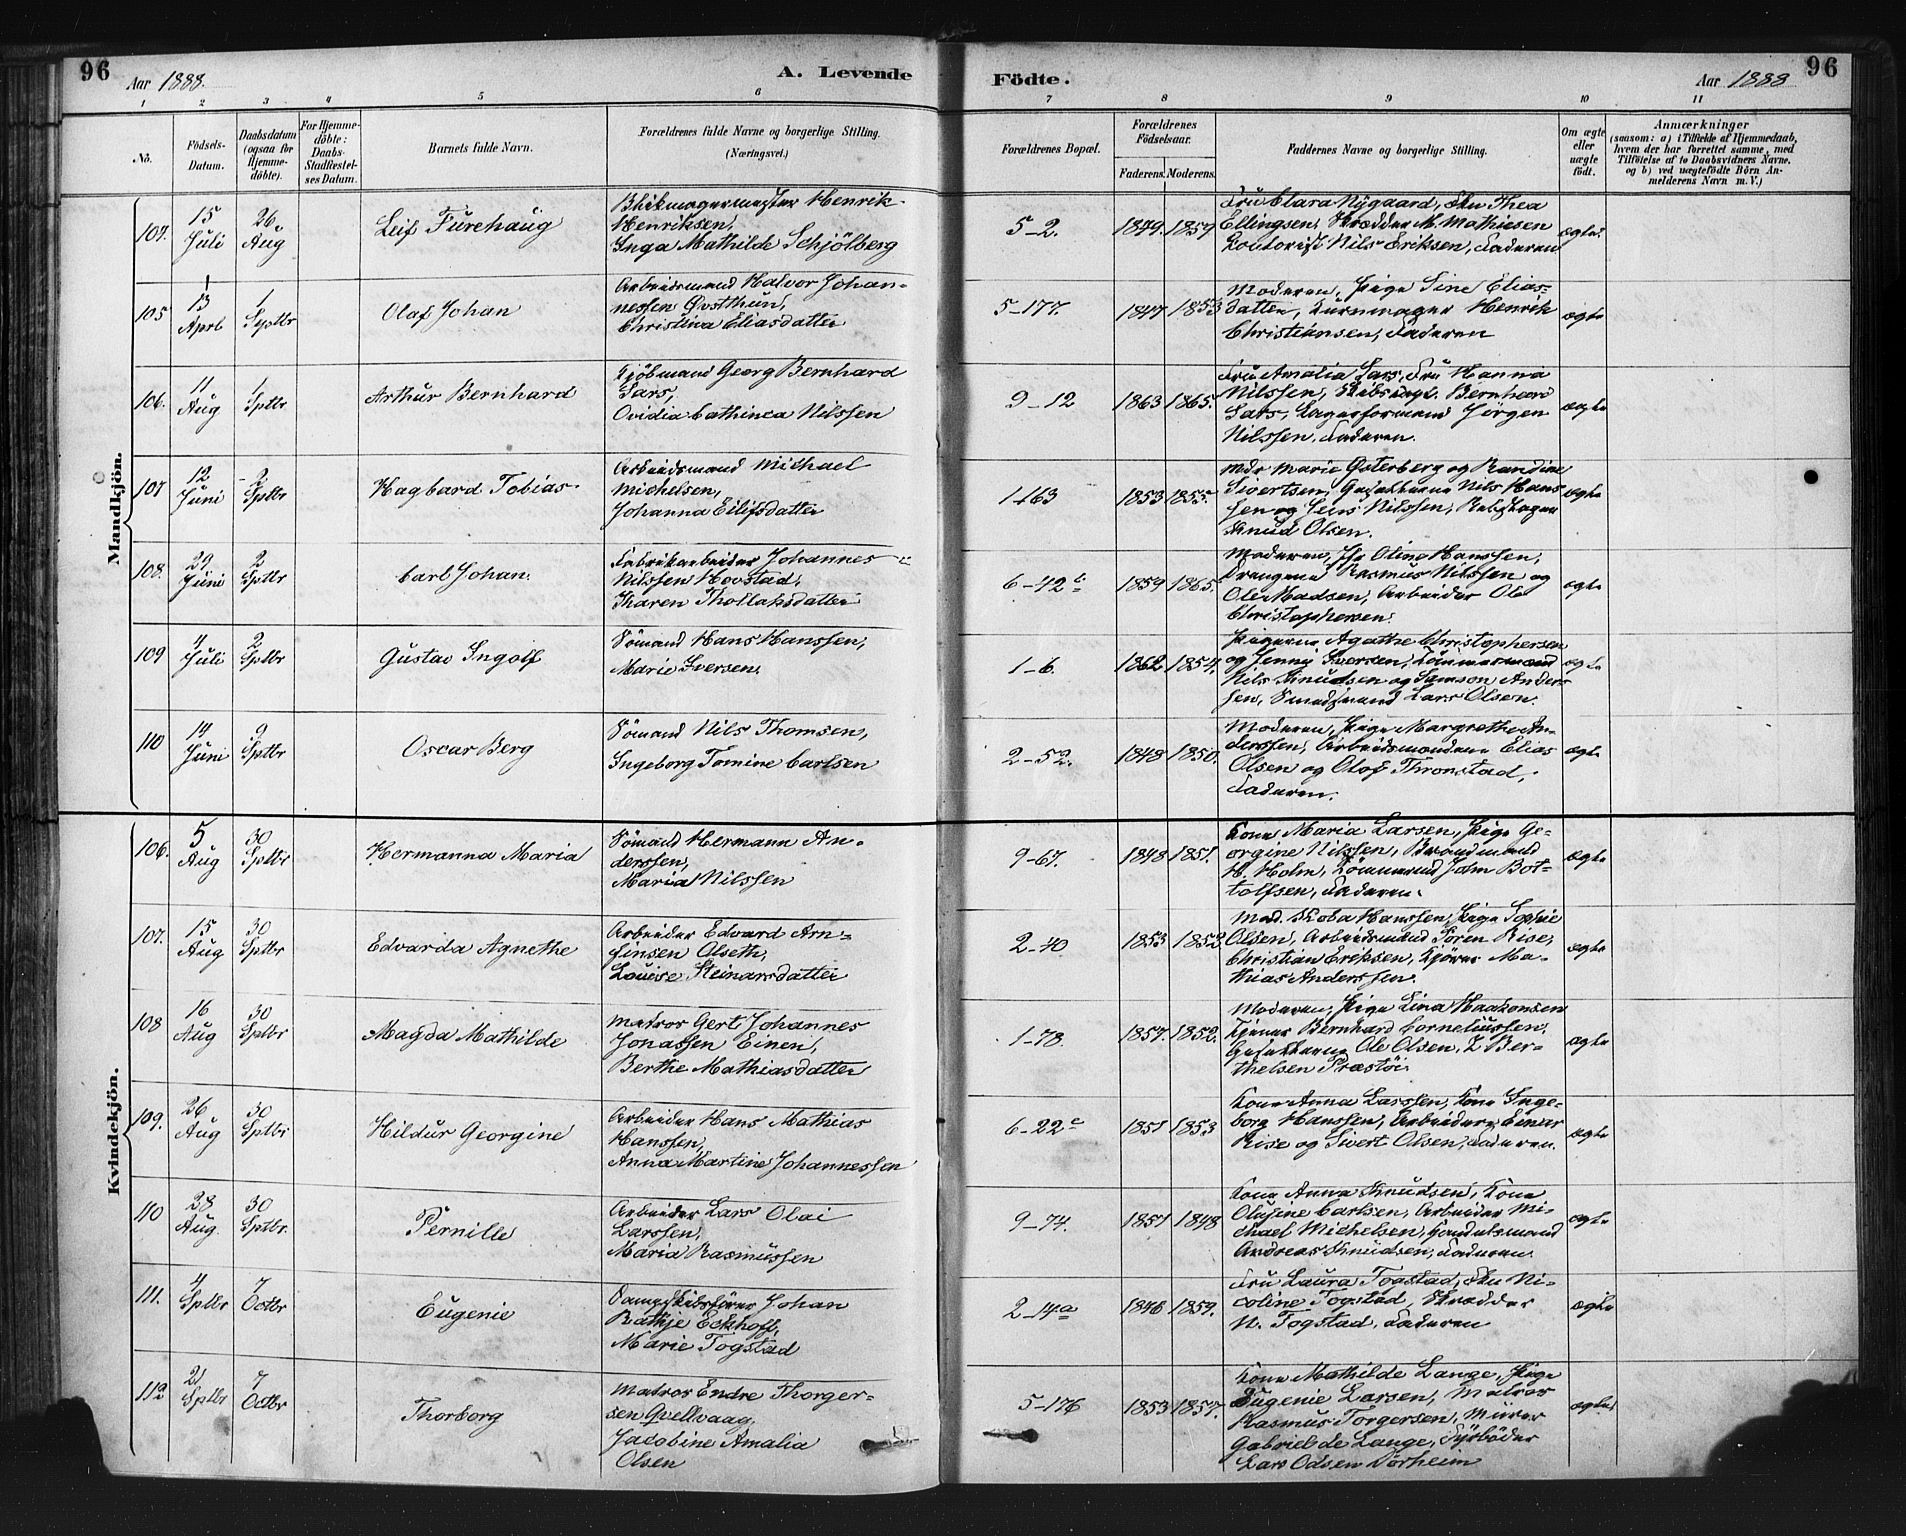 96
Aar 1888.
A. Levende
Födte.
Aar 1888
96
1 2 3 4 5 6 7 8 9 10 11
No.
Födsels-Datum.
Daabsdatum (ogsaa for Hjemme-döbte).
For Hjemme-döbte: Daabs-Stadfæstel-ses Datum.
Barnets fulde Navn.
Forældrenes fulde Navne og borgerlige Stilling. (Næringsvei.)
Forældrenes Bopæl.
Forældrenes Födselsaar.
Faderens. Moderens.
Faddernes Navne og borgerlige Stilling.
Om ægte eller uægte födt.
Anmærkninger
(saasom: a) i Tilfælde af Hjemmedaab, hvem der har forrettet samme, med Tilföielse af to Daabsvidners Navne. og b) ved uægtefödte Börn An-melderens Navn m. V.)
Mandkjön.
104. 15 Juli 26 Aug Leif Furehaug
Blikmagermester Henrik
Henriksen,
Inga Mathilde Schjölberg
5-2. 1849. 1859
Fru Clara Nygaard, Fru Thea
Ellingsen, Skrædder M. Mathiesen
Kontorist Nils Eriksen, Faderen
ægte.
105 13 April 1 Septbr Olaf Johan
Arbeidsmand Halvor Johan-
nessen Østthun,
Christina Eliasdatter
5-177. 1847 1853
Moderen, Pige Sine Elias-
datter, Kurvmager Henrik
Christiansen, Faderen
ægte
106. 11 Aug 1 Sptbr Arthur Bernhard
Kjöbmand Georg Bernhard
Sars,
Ovidia Cathinca Nilssen
9-12 1863 1865.
Fru Amalia Sars, Fru Hanna
Nilssen, Skibskapt. Bernhard
Sars, Lagerformand Jörgen
Nilssen. Faderen.
ægte
107 12 Juni 2 Sptbr Hagbard Tobias
Arbeidsmand Michael
Michelsen,
Johanna Eilifsdatter
1-163 1853 1855.
Mdr Marie Østerberg og Randine
Sivertsen, Gesellerne Nils Hans
sen og Nilssen, Rebslager
Knud Olsen.
ægte
108. 29 Juni 2 Sptbr Carl Johan.
Fabrikarbeider Johannes
Nilssen Hovstad,
Karen Thollaksdatter
6-42c 1859 1865.
Moderen, Pige Oline Hanssen,
Drengene Rasmus Nilssen og
Ole Madsen, Arbeider Ole
Christophersen.
ægte
109 4 Juli 2 Sptbr Gustav Ingolf
Sömand Hans Hanssen,
Marie Iversen.
1-6. 1862 1854.
Pigerne Agathe Christophersen
og Jenny Iversen, Tömmermand
Nils Knudsen og Samson Anders-
sen, Sundmand Lars Olsen.
ægte
110 14 Juni 9 Sptbr Oscar Berg
Sömand Nils Thomsen,
Ingeborg Tomine Carlsen
2-52. 1848 1850.
Moderen, Pige Margrethe An-
derssen, Arbeidsmændene Elias
Olsen og Olof Thronstad,
Faderen.
ægte
Kvindekjön.
106. 5 Aug 30 Sptbr Hermanna Maria
Sömand Hermann An-
derssen,
Maria Nilssen
9-67. 1848 1851.
Kone Maria Larsen, Pige Ge-
orgine Nilssen, Brandmand
H. Holm, Tömmermd John Bot-
tolfsen, Faderen.
ægte
107. 15 Aug 30 Sptbr Edvarda Agnethe
Arbeider Edvard Arn-
finsen Olseth,
Louise Steinarsdatter
2-40 1853 1853
Mad. Hanssen, Pige Sophie
Olsen, Arbeidsmand Sören Rise,
Christian Eriksen, Kjörer Ma-
thias Anderssen.
ægte
108 16 Aug 30 Sptbr Magda Mathilde
Matros Gert Johannes
Jonassen Einen,
Berthe Mathiasdatter
1-78. 1857. 1852.
Moderen, Pige Lina Haakonsen
Tjener Bernhard Corneliussen,
Gesellerne Ole Olsen, Z Ber-
thelsen Præstöi
ægte
109. 26 Aug 30 Sptbr Hildur Georgine
Arbeider Hans Mathias
Hanssen,
Anna Martine Johannessen
6-22c 1851 1853
Kone Anna Larssen, Kone Inge-
borg Hanssen, Arbeidere Einar
Rise og Sivert Olsen, Faderen.
ægte
110 28 Aug. 30 Sptbr. Pernille
Arbeider Lars Olai
Larssen,
Maria Rasmussen
9-74. 1851 1848
Kone Anna Knudsen, Kone
Olufine Carlsen, Arbeider Mi-
chael Michelsen, Handelsmand
Andreas Knudsen, Faderen.
ægte
111. 4 Sptbr 7 Octbr Eugenie
Dampskibsförer Johan
Rathje Eckhoff,
Marie Togstad
2-14a 1846 1859.
Fru Laura Togstad, Fru Ni-
coline Togstad, Skrædder
N. Togstad, Faderen
ægte
112 21 Sptbr 7 Octbr Thorborg
Matros Endre Thorger-
sen Qvellvaag,
Jacobine Amalia
Olsen
5-176 1853 1857.
Kone Mathilde Lange, Pige
Eugenie Larsen, Matros
Rasmus Torgersen, Murer
Gabriel de Lange, Fyrböder
Lars Odsen Dörheim
ægte